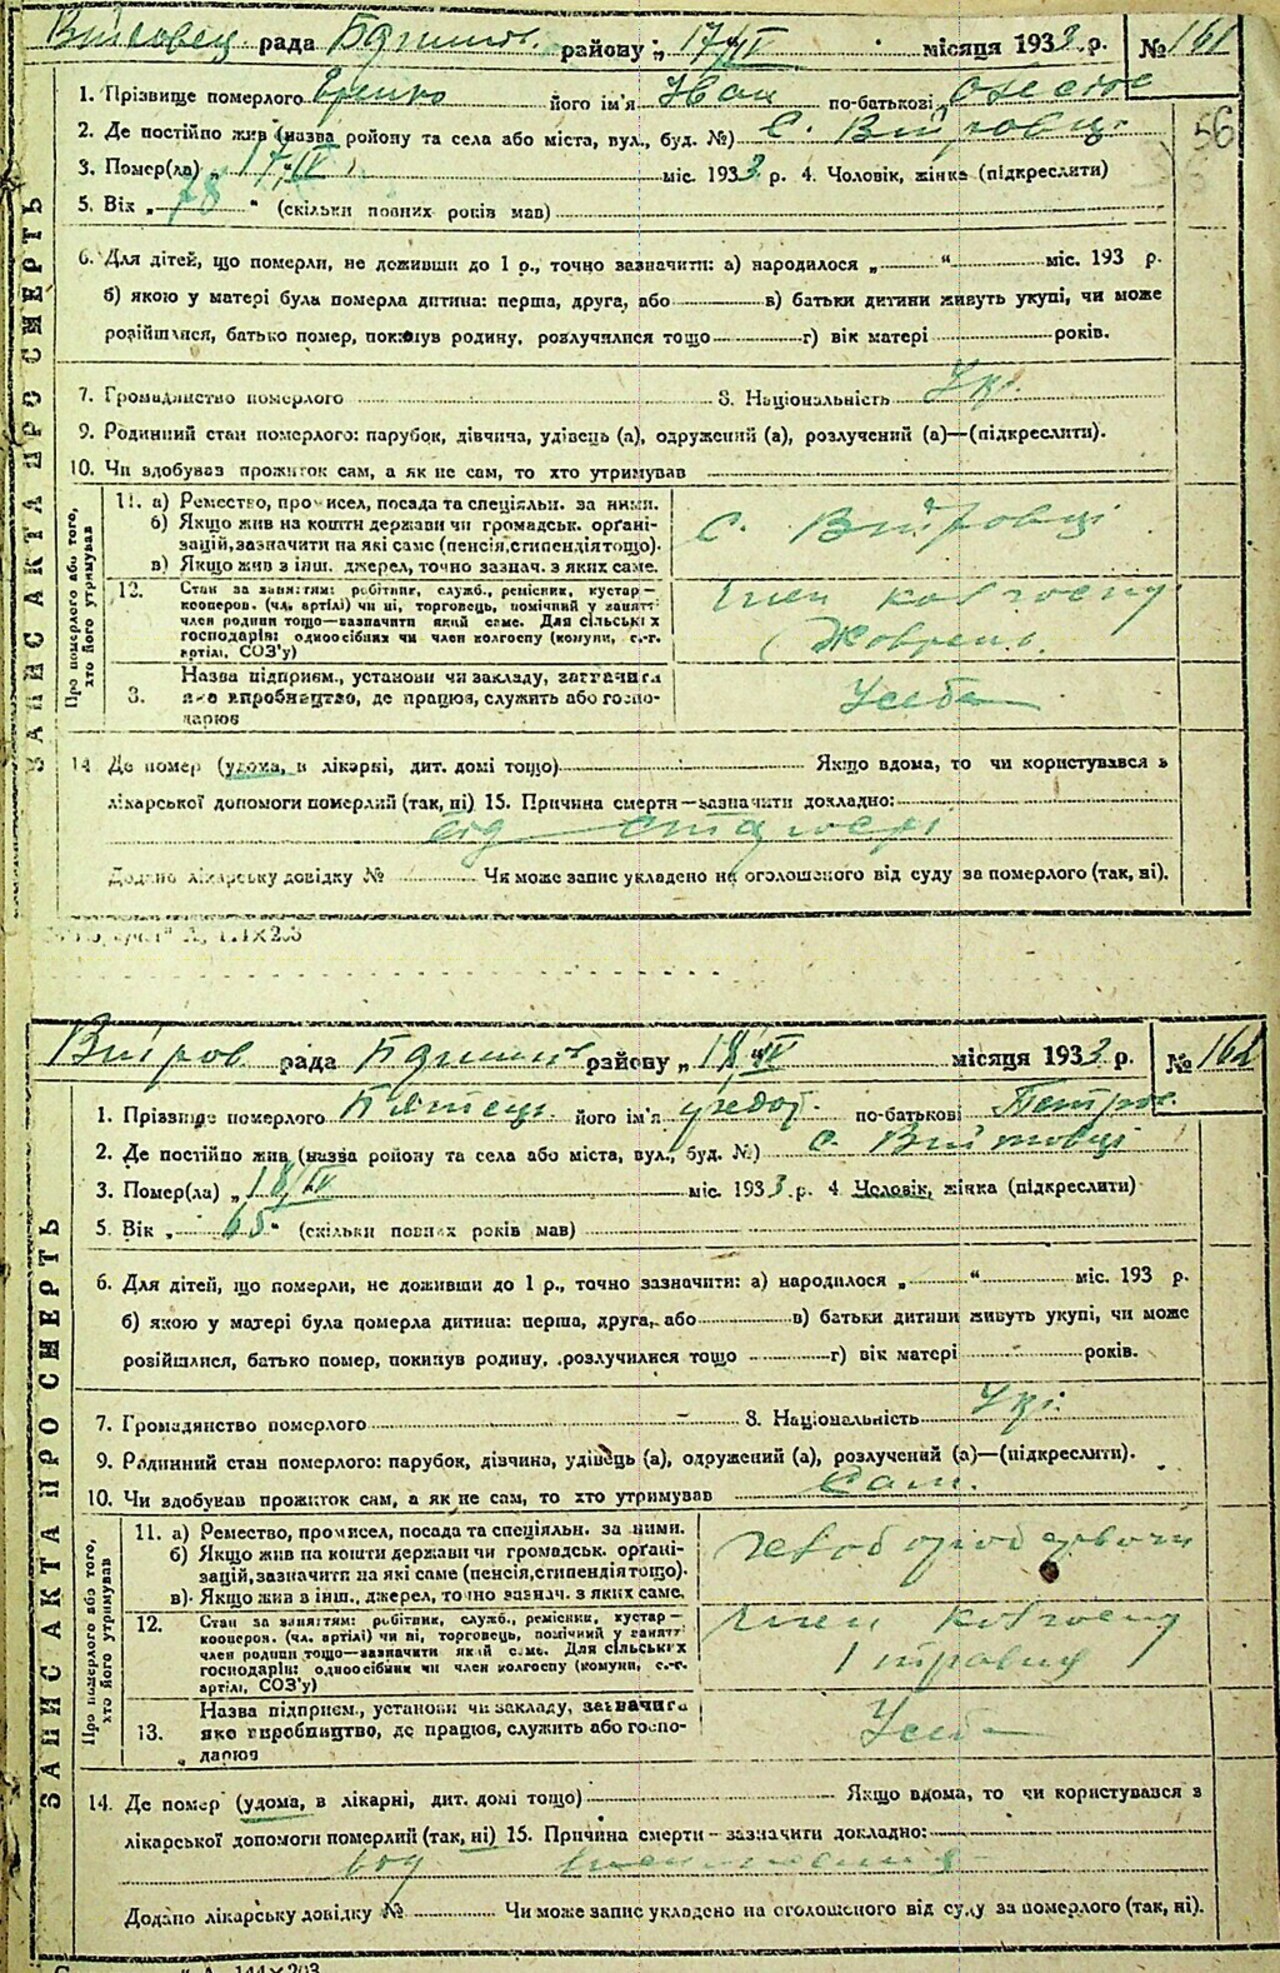 рада району „ 17/IV місяця 1933 р. № 161
1. Прізвище померлого його ім'я Іван по-батькові
56
2. Де постійно жив (назва району та села або міста, вул., буд. №) с. Війтовці
3. Помер(ла) „ 17/IV міс. 1933 р. 4. Чоловік, жінка (підкреслити)
5. Вік „ 78 “ (скільки повних років мав)
6. Для дітей, що померли, не доживши до 1 р., точно зазначити: а) народилося „ “ міс. 193 р.
б) якою у матері була померла дитина: перша, друга, або в) батьки дитини живуть укупі, чи може
розійшлися, батько помер, покинув родину, розлучилися тощо г) вік матері років.
7. Громадянство померлого 8. Національність Укр.
9. Родинний стан померлого: парубок, дівчина, удівець (а), одружений (а), розлучений (а)—(підкреслити).
10. Чи здобував прожиток сам, а як не сам, то хто утримував
ЗАПИС АКТА ПРО СМЕРТЬ
Про померлого або того, хто його утримував
11. а) Ремество, промисел, посада та спеціяльн. за ними.
б) Якщо жив на кошти держави чи громадськ. орґані-
зацій, зазначити на які саме (пенсія, стипендія тощо).
в) Якщо жив з інш. джерел, точно зазнач. з яких саме.
с. Війтовці
12. Стан за заняттям: робітник, служб., ремісник, кустар—
кооперов. (чл. артілі) чи ні, торговець, помічний у занятт
член родини тощо—зазначити який саме. Для сільських
господарів: одноосібник чи член колгоспу (комуни, с.-г.
артілі, СОЗ'у)
Член колгоспу
3. Назва підприєм., установи чи закладу, зазначига
яке виробництво, де працює, служить або госпо-
дарює
14 Де помер (удома, в лікарні, дит. домі тощо) Якщо вдома, то чи користувався з
лікарської допомоги померлий (так, ні) 15. Причина смерти—зазначити докладно:
від старості
Додано лікарську довідку № Чи може запис укладено на оголошеного від суду за померлого (так, ні).
рада району „ 18/IV місяця 1933 р. № 162
1. Прізвище померлого його ім'я по-батькові Петров.
2. Де постійно жив (назва району та села або міста, вул., буд. №) с. Війтовці
3. Помер(ла) „ 18/IV міс. 1933 р. 4 Чоловік, жінка (підкреслити)
5. Вік „ 65 “ (скільки повних років мав)
6. Для дітей, що померли, не доживши до 1 р., точно зазначити: а) народилося „ “ міс. 193 р.
б) якою у матері була померла дитина: перша, друга, або в) батьки дитини живуть укупі, чи може
розійшлися, батько помер, покинув родину, розлучилися тощо г) вік матері років.
7. Громадянство померлого 8. Національність Укр.
9. Родинний стан померлого: парубок, дівчина, удівець (а), одружений (а), розлучений (а)—(підкреслити).
10. Чи здобував прожиток сам, а як не сам, то хто утримував Сам.
ЗАПИС АКТА ПРО СМЕРТЬ
Про померлого або того, хто його утримував
11. а) Ремество, промисел, посада та спеціяльн. за ними.
б) Якщо жив на кошти держави чи громадськ. орґані-
зацій, зазначити на які саме (пенсія, стипендія тощо).
в) Якщо жив в інш. джерел, точно зазнач. з яких саме.
12. Стан за заняттям: робітник, служб., ремісник, кустар—
кооперов. (чл. артілі) чи ні, торговець, помічний у занятт
член родини тощо—зазначити який саме. Для сільських
господарів: одноосібник чи член колгоспу (комуни, с.-г.
артілі, СОЗ'у)
Член колгоспу
1 травня
13. Назва підприєм., установи чи закладу, зазначига
яке виробництво, де працює, служить або госпо-
дарює
14. Де помер (удома, в лікарні, дит. домі тощо) Якщо вдома, то чи користувався з
лікарської допомоги померлий (так, ні) 15. Причина смерти—зазначити докладно:
Додано лікарську довідку № Чи може запис укладено на оголошеного від суду за померлого (так, ні).